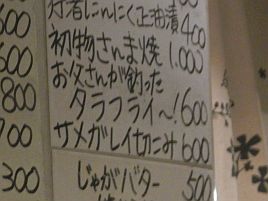 行者にんにく正油漬 400
初物さんま焼 1.000
お父さんが釣った
タラフライ〜! 600
サメガレイ切こみ 600
じゃがバター 500
600
600
800
700
300